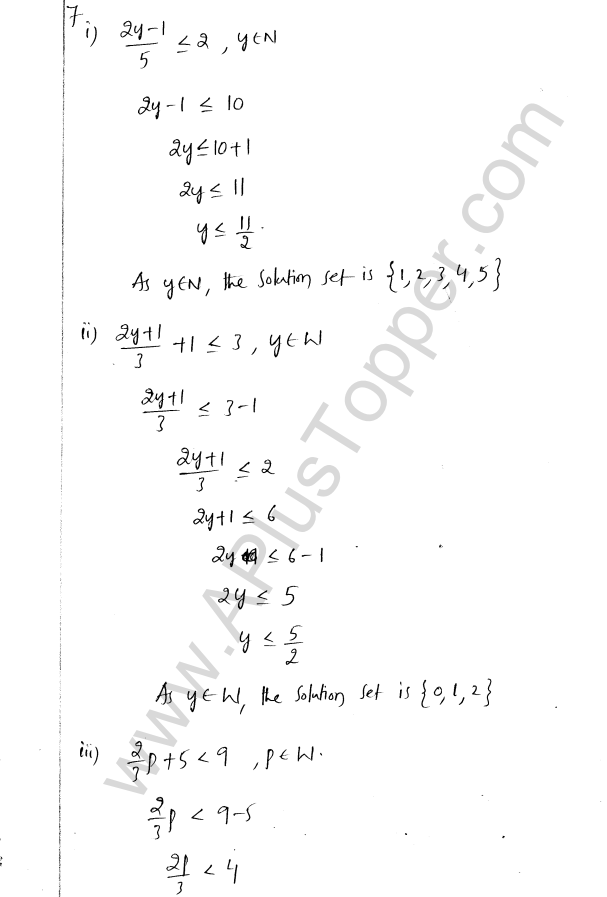 7.
i) (2y-1)/5 ≤ 2 , y∈N
2y-1 ≤ 10
2y ≤ 10+1
2y ≤ 11
y ≤ 11/2.
As y∈N, the solution set is {1, 2, 3, 4, 5}
ii) (2y+1)/3 +1 ≤ 3, y∈W
(2y+1)/3 ≤ 3-1
(2y+1)/3 ≤ 2
2y+1 ≤ 6
2y ≤ 6-1
2y ≤ 5
y ≤ 5/2
As y∈W, the solution set is {0, 1, 2}
iii) 2/3 p + 5 < 9 , p∈W.
2/3 p < 9-5
2p/3 < 4
www.APlusTopper.com